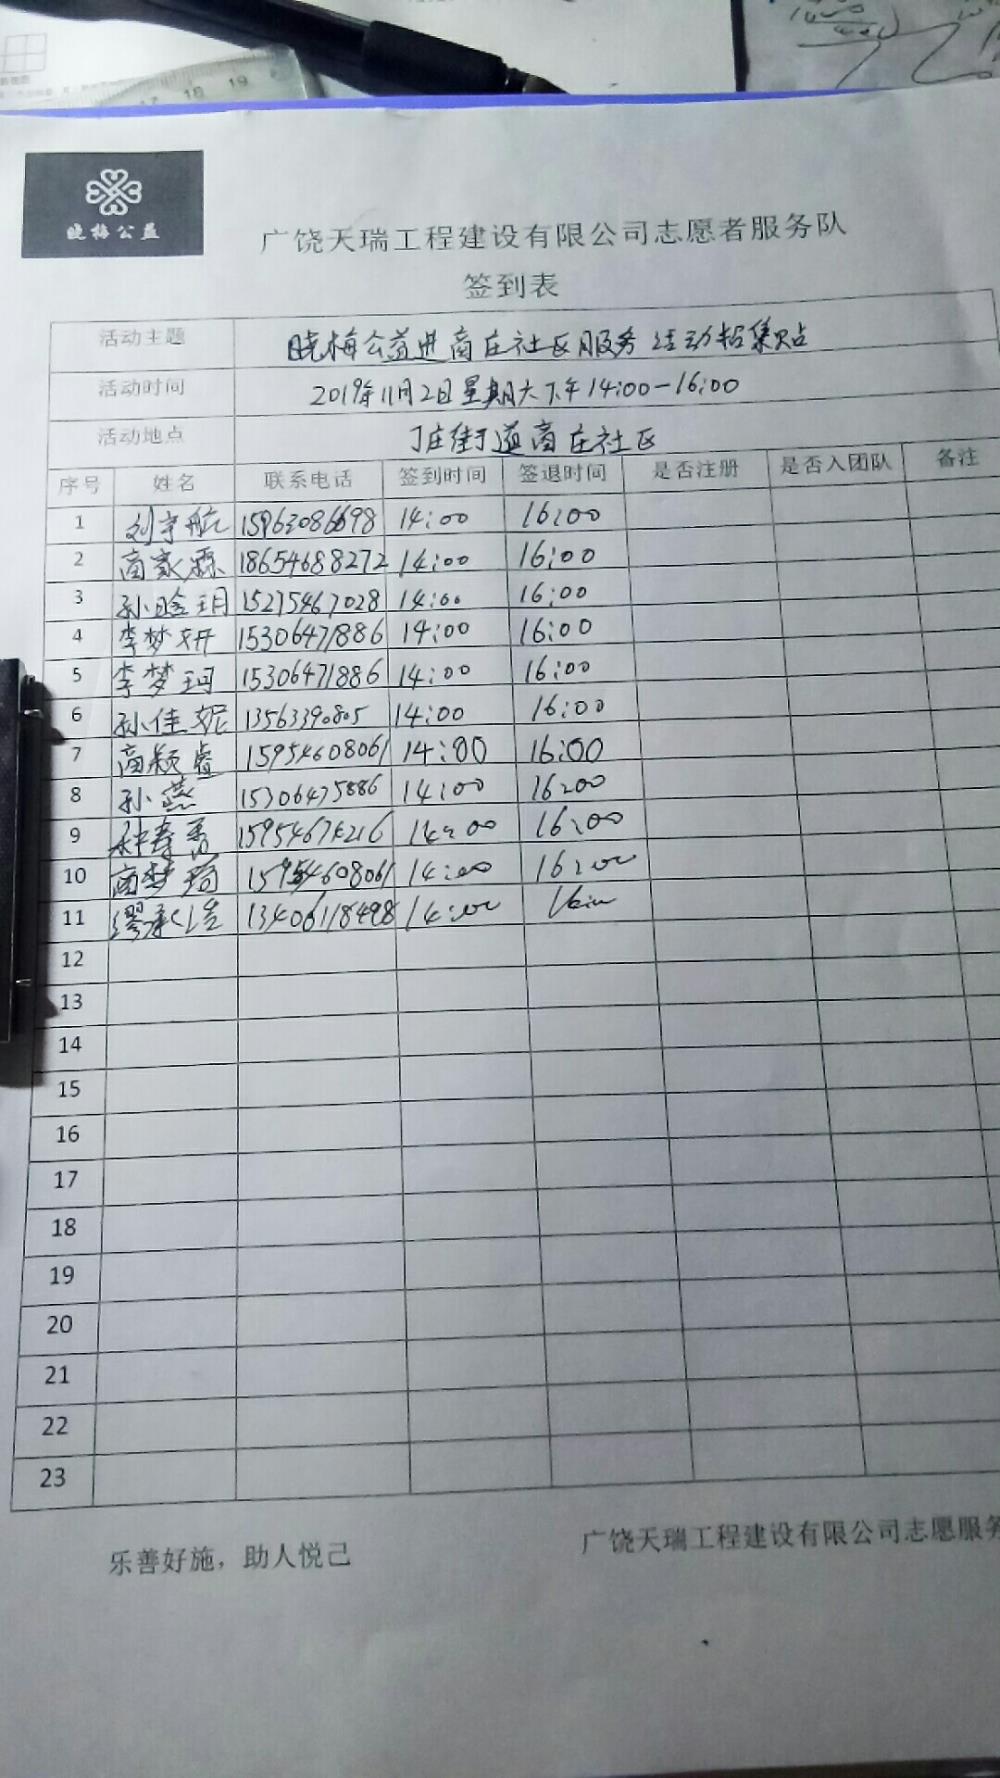 17 18 19
晓梅公益
广饶天瑞工程建设有限公司志愿者服务队
签到表
活动主题 晓梅公益进商庄社区服务活动招集贴
活动时间 2019年11月2日星期六下午14:00-16:00
活动地点 丁庄街道商庄社区
序号 姓名 联系电话 签到时间 签退时间 是否注册 是否入团队 备注
1 刘宇航 15963086698 14:00 16:00
2 商家霖 18654688272 14:00 16:00
3 孙晗玥 15275467028 14:00 16:00
4 李梦妍 15306471886 14:00 16:00
5 李梦珂 15306471886 14:00 16:00
6 孙佳妮 13563390805 14:00 16:00
7 商颖睿 15954608061 14:00 16:00
8 孙燕 15306475886 14:00 16:00
9 15954674216 14:00 16:00
10 商梦琦 15954608061 14:00 16:00
11 缪承 13406118498 14:00 16:00
12
13
14
15
16
17
18
19
20
21
22
23
乐善好施，助人悦己 广饶天瑞工程建设有限公司志愿服务